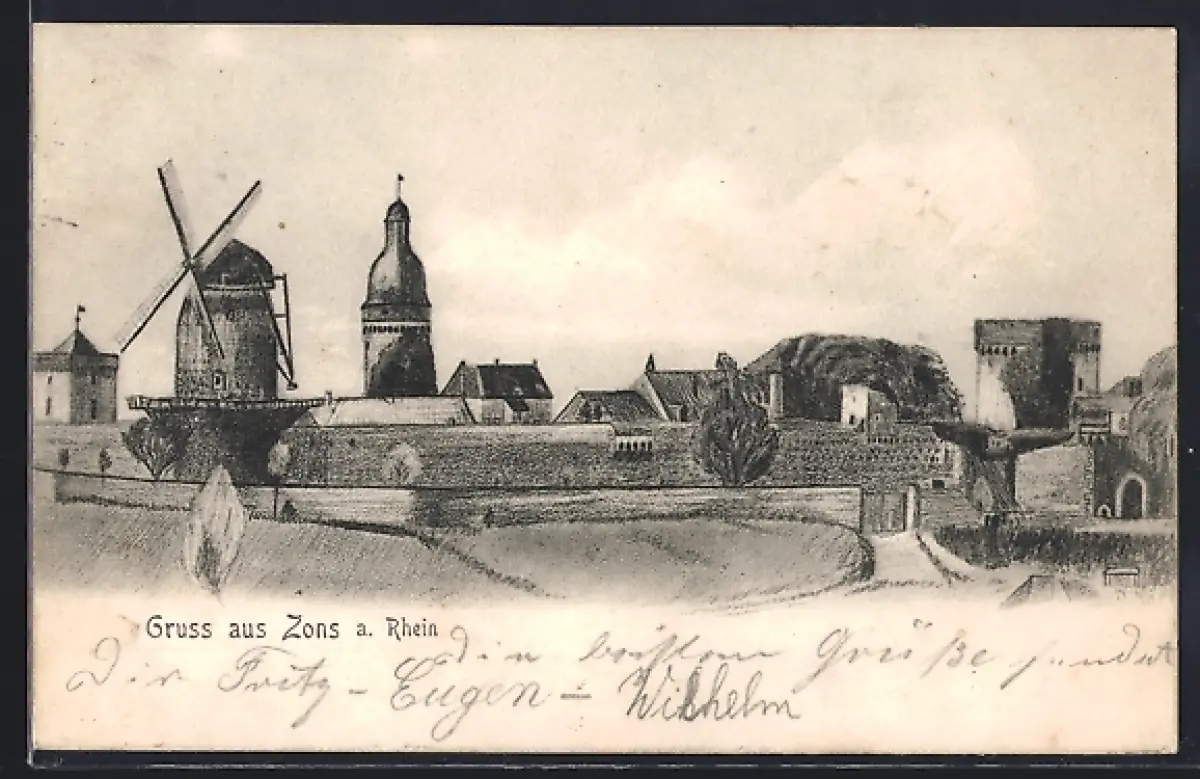 Gruss aus Zons a. Rhein
Dir die besten Grüße sendet
Fritz - Eugen - Wilhelm